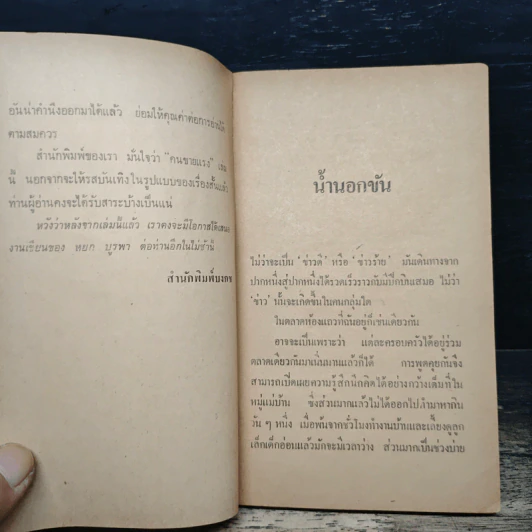 อันน่าคำนึงออกมาได้แล้ว ย่อมให้คุณค่าต่อการอ่านได้
ตามสมควร
สำนักพิมพ์ของเรา มั่นใจว่า “คนขายแรง” เล่ม
นี้ นอกจากจะให้รสบันเทิงในรูปแบบของเรื่องสั้นแล้ว
ท่านผู้อ่านคงจะได้รับสาระบ้างเป็นแน่
หวังว่าหลังจากเล่มนี้แล้ว เราคงจะมีโอกาสได้เสนอ
งานเขียนของ หยก บูรพา ต่อท่านอีกในไม่ช้านี้
สำนักพิมพ์บงกช
น้ำนอกขัน
ไม่ว่าจะเป็น ‘ข่าวดี’ หรือ ‘ข่าวร้าย’ มันเดินทางจาก
ปากหนึ่งสู่ปากหนึ่งได้รวดเร็วราวกับมีปีกบินเสมอ ไม่ว่า
‘ข่าว’ นั้นจะเกิดขึ้นในคนกลุ่มใด
ในตลาดห้องแถวที่ฉันอยู่ก็เช่นเดียวกัน
อาจจะเป็นเพราะว่า แต่ละครอบครัวได้อยู่ร่วม
ตลาดเดียวกันมาเนิ่นนานแล้วก็ได้ การพูดคุยกันจึง
สามารถเปิดเผยความรู้สึกนึกคิดได้อย่างกว้างเต็มที่ใน
หมู่แม่บ้าน ซึ่งส่วนมากแล้วไม่ได้ออกไปทำมาหากิน
วัน ๆ หนึ่ง เมื่อพ้นจากชั่วโมงทำงานบ้านและเลี้ยงดูลูก
เล็กเด็กอ่อนแล้วมักจะมีเวลาว่าง ส่วนมากเป็นช่วงบ่าย